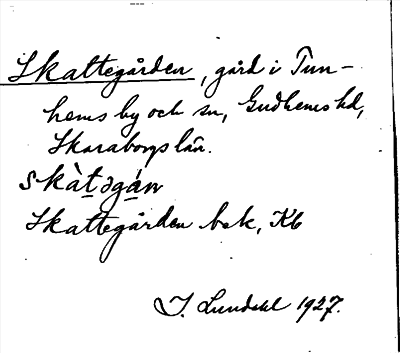 Skattegården, gård i Tun-
hems by och sn, Gudhems hd,
Skaraborgs län.
skàt̠əgá̠n
Skattegården bek, Kb
I. Lundahl 1927.